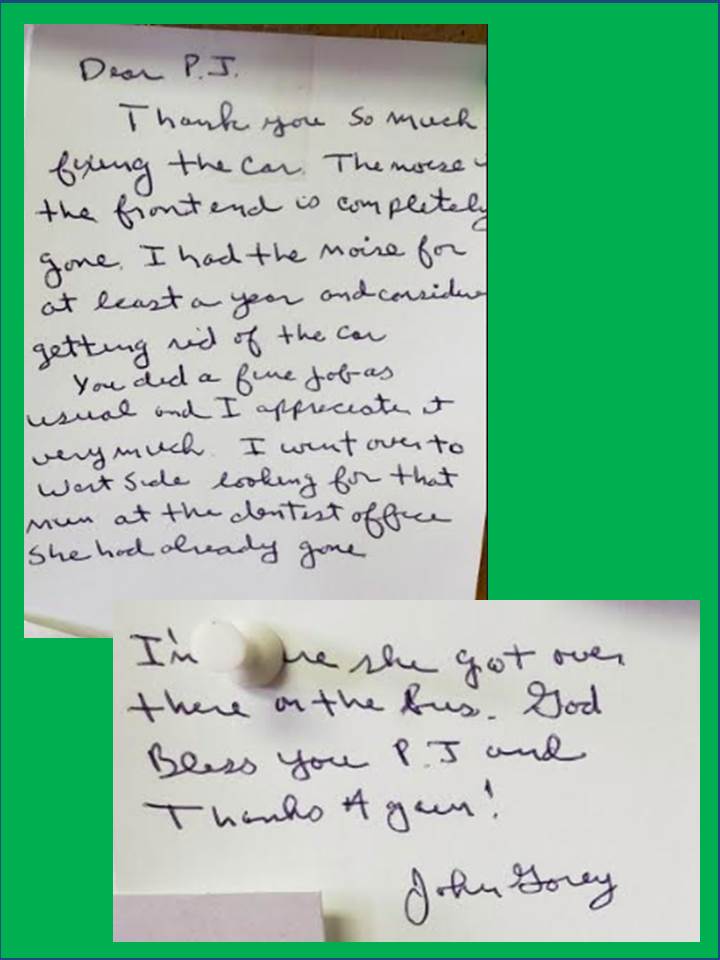 Dear P.J.
Thank you so much
fixing the car. The noise
the front end is completely
gone. I had the noise for
at least a year and
getting rid of the car
You did a fine job as
usual and I appreciate it
very much. I went over to
West Side looking for that
at the dentist office
She had already gone
I'm she got over
there on the Bus. God
Bless you P.J and
Thanks Again!
John Gorey